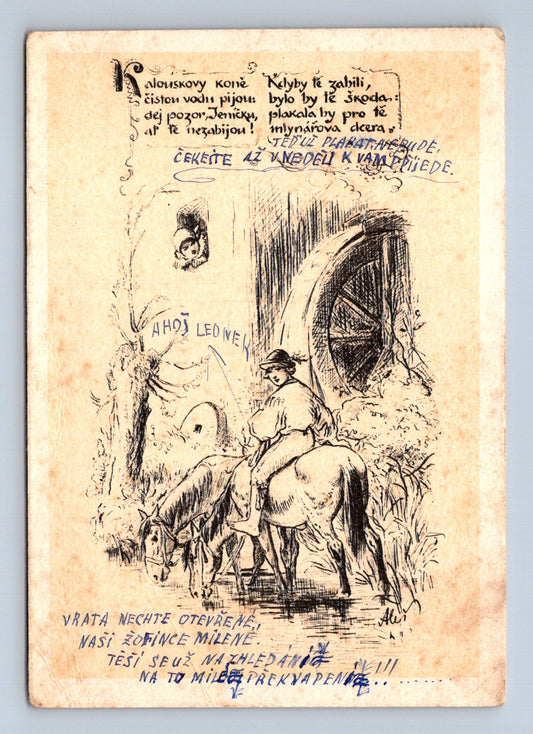 Kalouskovy koně
čistou vodu pijou:
dej pozor, Jeníčku,
ať tě nezabijou!
Kdyby tě zabili,
bylo by tě škoda:
plakala by pro tě
mlynářova dcera.
TEĎ UŽ PLAKAT NEBUDE.
ČEKEJTE AŽ V NEDĚLI K VAM PŘIJEDE.
AHOJ
VRATA NECHTE OTEVŘENÉ,
NAŠI ŽOFINCE MILENÉ
TĚŠÍ SE UŽ NA ZHLEDÁNÍ
NA TO MILÉ PŘEKVAPENÍ!!! ........
Aleš